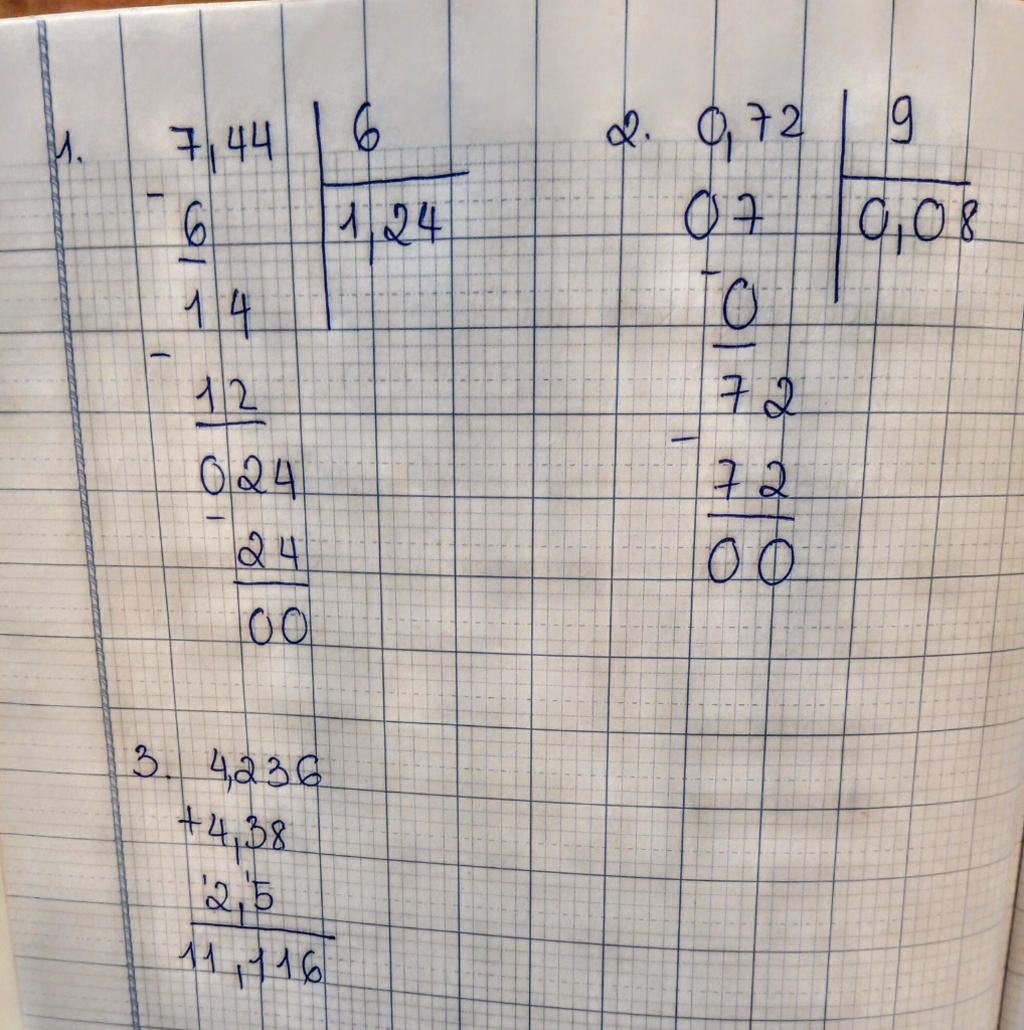 1. 7,44 | 6
- 6 | 1,24
14
- 12
024
- 24
00
2. 0,72 | 9
07 | 0,08
- 0
72
- 72
00
3. 4,236
+4,38
2,5
11,116